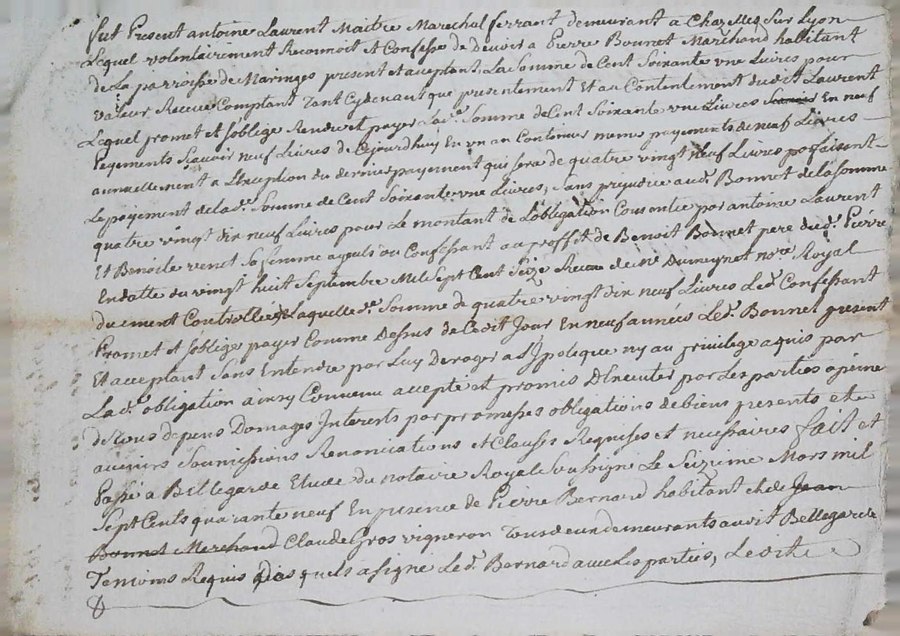 fut Present antoine Laurent Maitre Marechal ferrant demeurant a Chazelles Sur Lyon
Lequel volontairement Reconnoit et Confesse de Devoir a Pierre Bonnet Marchand habitant
de La parroisse de Maringes present et aceptant La Somme de Cent Soixante une Livres pour
valeur Receue Comptant Tant Cydevant que presentement Et au Contentement dudit Laurent
Lequel promet et soblige Rendre et payer Lade. Somme de Cent Soixante une Livres En neuf
Peyements Scavoir neuf Livres de Cejourdhuy En un an Continuer meme payements de neuf Livres
annuellement a L'exception du dernier payement qui sera de quatre vingt neuf Livres po faisant
Le payement de lade. Somme de Cent Soixante une Livres, Sans prejudice aud. Bonnet de la somme
quatre vingt dix neuf Livres pour Le montant de L'obligation Consentie par antoine Laurent
Et Benoite venet Sa femme ayeuls du Confessant au proffit de Benoit Bonnet pere dud. Pierre
En datte du vingt huit Septembre Mil Sept Cent Seize Receue de Me Dumeynet nore Royal
duement Controllée Laquelle de. Somme de quatre vingt dix neuf Livres Led. Confessant
Promet et soblige payer Comme Dessus de Cedit Jour En neuf années Led. Bonnet present
Et acceptant Sans Entendre par Luy Deroger a Lypoteque ny au privilege aquis par
Lade. obligation ainsy Convenu accepte et promis D'Executer par Les parties a peine
de Tous depens Domages Interets par promesses obligations de biens presents et
avenirs Soumissions Renonciations et Clauses Requises et necessaires fait et
Passé a Bellegarde Etude du notaire Royal Soussigné Le Seizieme Mars mil
Sept Cents quarante neuf En presence de Pierre Bernard habitant Jean
Bonnet Marchand Claude Gros vigneron Tous deux demeurants audit Bellegarde
Temoins Requis Des quels a signe Led. Bernard avec Les parties,